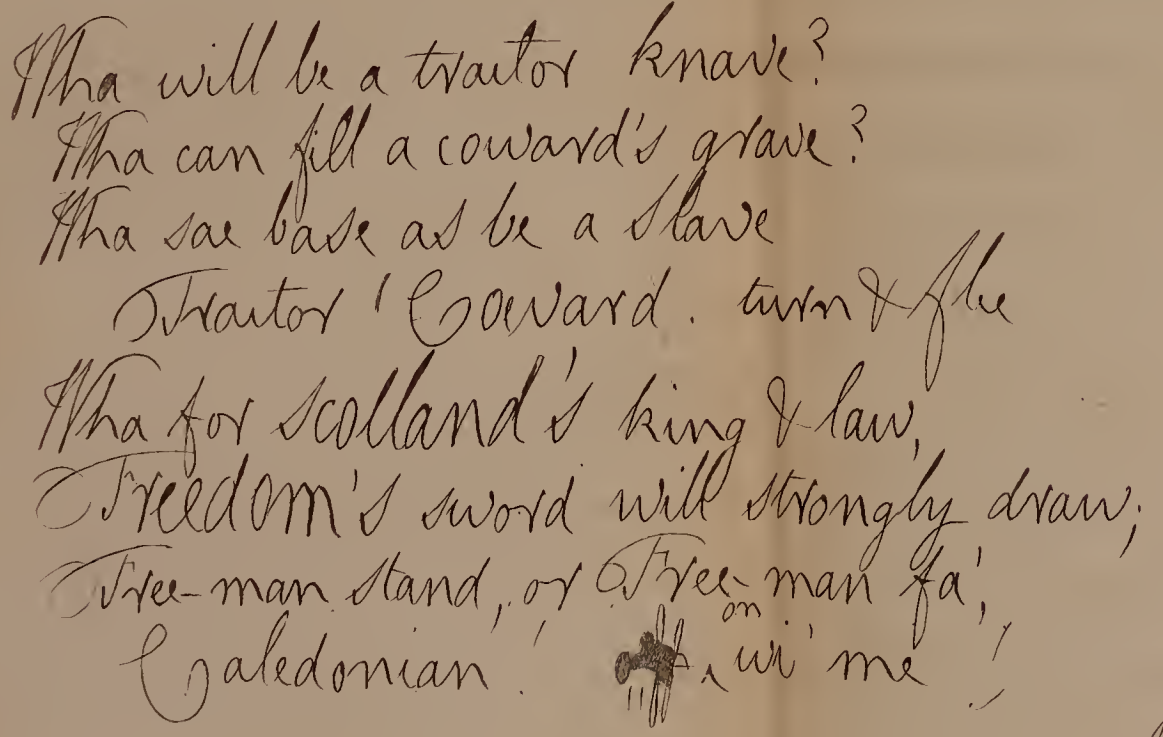 Wha will be a traitor knave?
Wha can fill a coward's grave?
Wha sae base as be a slave
Traitor! Coward. turn & flee
Wha for Scotland's king & law,
Freedom's sword will strongly draw;
Free-man stand, or Free-man fa',
Caledonian! on wi' me!